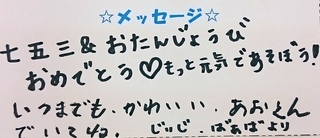 ☆メッセージ☆
七五三&おたんじょうび
おめでとう♡もっと元気であそぼう!
いつまでも、かわいい、あおくん
でいてね。じぃじ ばぁばより